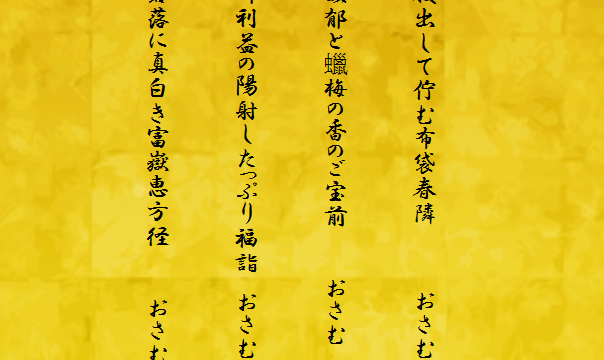 出して佇む布袋春隣 おさむ
郁と蠟梅の香のご宝前 おさむ
利益の陽射したっぷり福詣 おさむ
落に真白き富嶽恵方径 おさむ